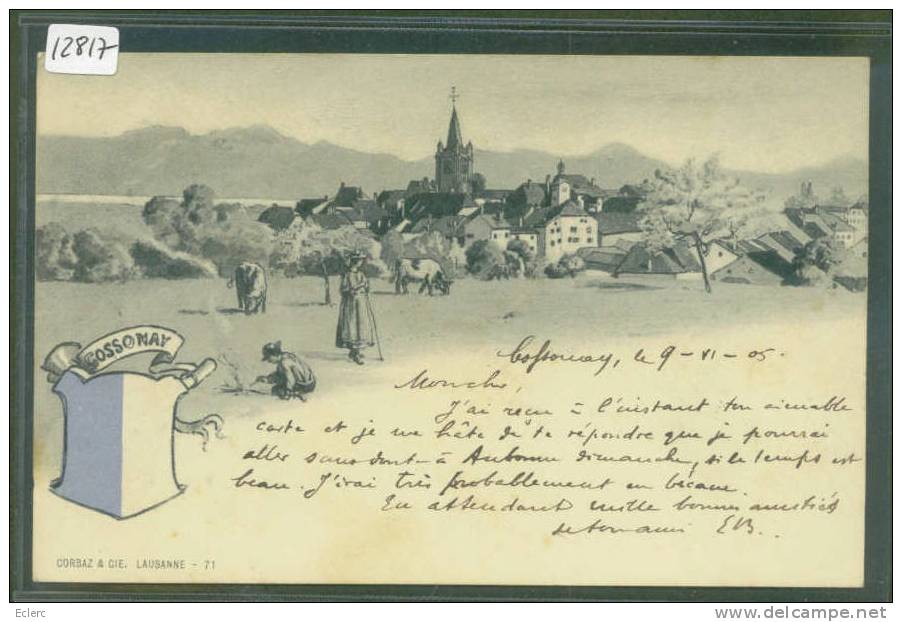 12817
COSSONAY
Cossonay, le 9 - VI - 05.
Mon cher,
J'ai reçu à l'instant ton aimable
carte et je me hâte de te répondre que je pourrai
aller sans dout à Aubonne dimanche, si le temps est
beau. J'irai très probablement en bécane.
En attendant mille bonnes amitiés
de ton ami EB..
CORBAZ & CIE. LAUSANNE - 71
Eclerc
www.delcampe.net